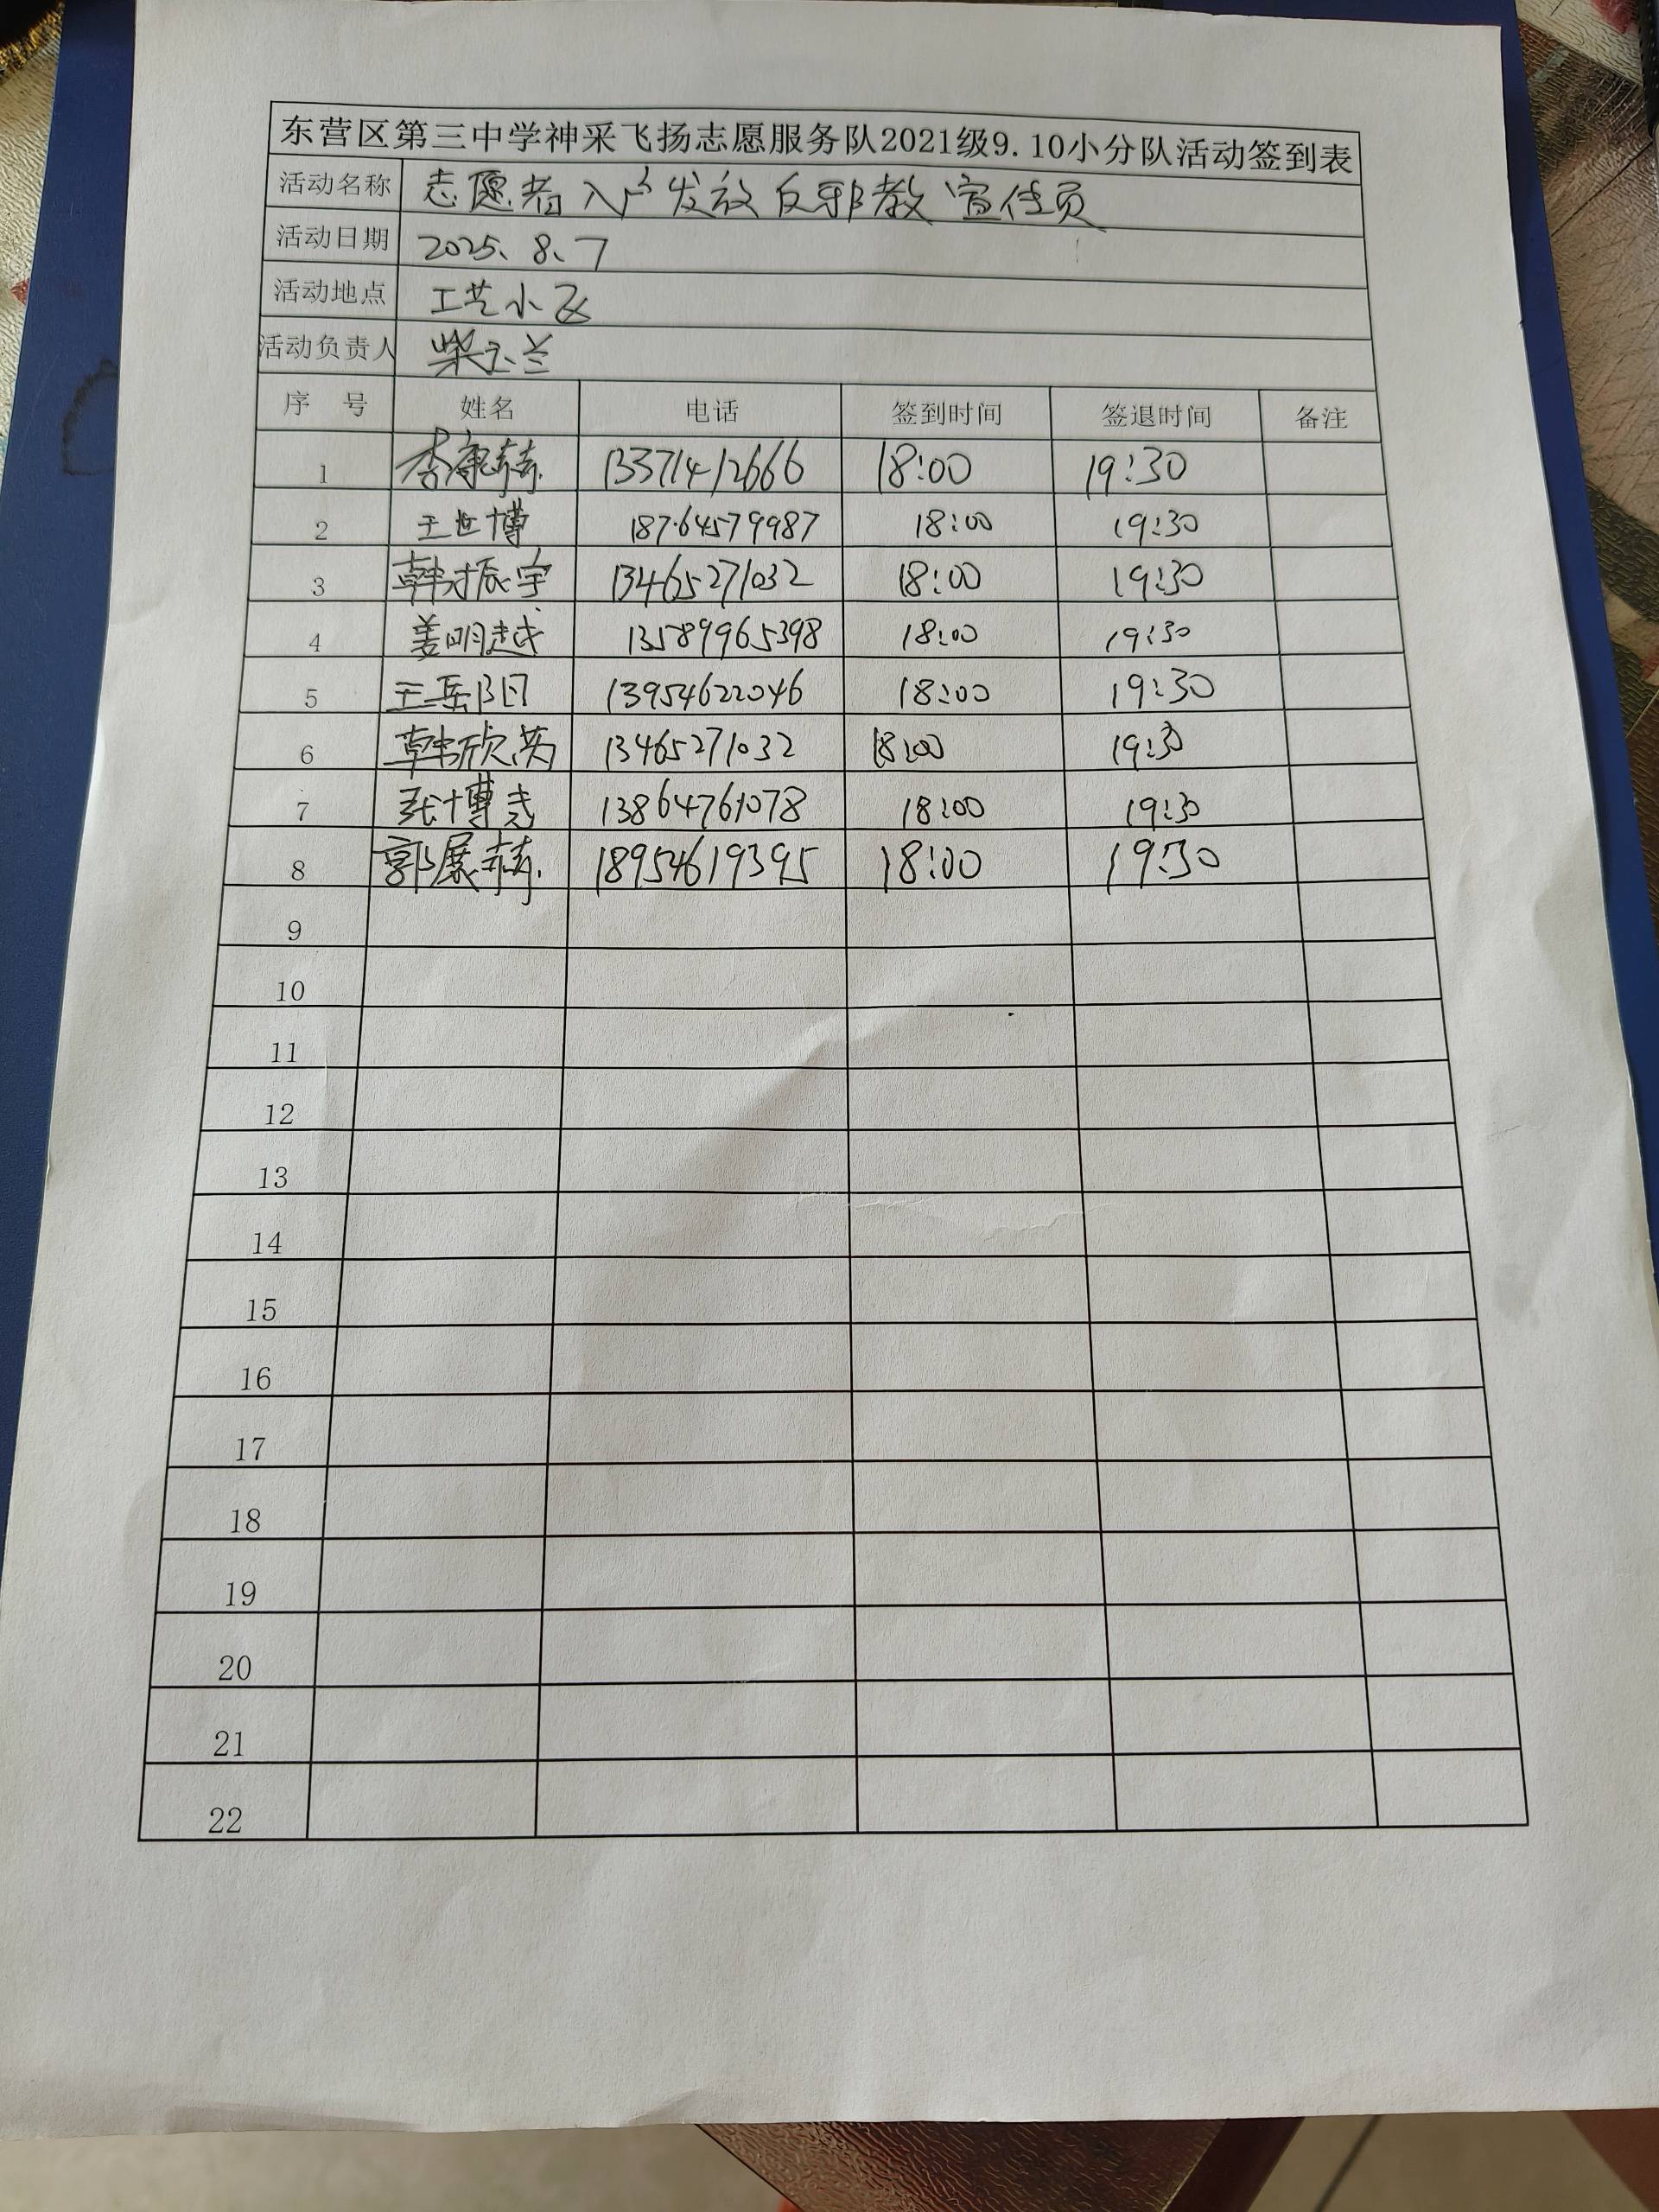 东营区第三中学神采飞扬志愿服务队2021级9.10小分队活动签到表
活动名称 志愿者入户发放反邪教宣传页
活动日期 2025.8.7
活动地点 工艺小区
活动负责人 柴玉兰
序 号 姓名 电话 签到时间 签退时间 备注
1 李康赫 13371412666 18:00 19:30
2 王世博 18764579987 18:00 19:30
3 韩辰宇 13465271032 18:00 19:30
4 姜明越 13589965398 18:00 19:30
5 王岳阳 13954622046 18:00 19:30
6 韩欣芮 13465271032 18:00 19:30
7 张博尧 13864761078 18:00 19:30
8 郭展赫 18954619395 18:00 19:30
9
10
11
12
13
14
15
16
17
18
19
20
21
22